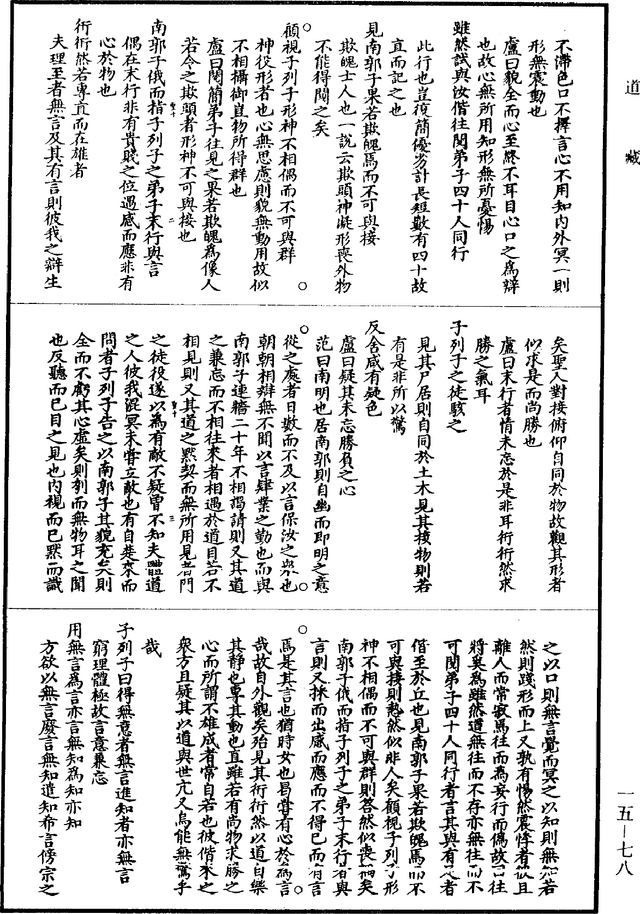 道藏
不滯色口不擇言心不用知內外冥一則
形無震動也
盧曰貌全而心至終不耳目心口之為辯
也故心無所用知形無所憂惕
雖然試與汝偕往閱弟子四十人同行
此行也豈復簡優劣計長短數有四十故
直而記之也
見南郭子果若欺魄焉而不可與接
欺魄土人也一說云欺頭神凝形喪外物
不能得闚之矣
顧視子列子形神不相偶而不可與群
神役形者也心無思慮則貌無動用故似
不相攝御豈物所得群也
盧曰閱簡弟子往見之果若欺魄為像人
若今之欺頭者形神不可與接也
南郭子俄而指子列子之弟子末行與言
偶在末行非有貴賤之位遇感而應非有
心於物也
衎衎然若專直而在雄者
夫理至者無言及其有言則彼我之辯生
矣聖人對接俯仰自同於物故觀其形者
似求是而尚勝也
盧曰末行者情未忘於是非耳衎衎然求
勝之氣耳
子列子之徒駭之
見其尸居則自同於土木見其接物則若
有是非所以驚
反舍咸有疑色
盧曰疑其未忘勝負之心
范曰南明也居南郭則自幽而即明之意
從之處者日數而不及以言保汝之眾也
朝朝相辯無不聞以言肆業之勤也而與
南郭子連牆二十年不相謁請則又其道
之兼忘而不相往來者相遇於道目若不
相見則又其道之默契而無所用見者門
之徒役遂以為有敵不疑曾不知夫體道
之人彼我混冥未嘗立敵也有自楚來而
問者子列子告之以南郭子其貌充矣則
全而不虧其心虛矣則刳而無物耳之聞
也反聽而已目之見也內視而已默而識
之以口則無言覺而冥之以知則無知若
然則踐形而上又孰有惕然震悸者哉且
離人而常寂焉往而為妄行而偶故曰往
將奚為雖然道無往而不存亦無往而不
可閱弟子四十人同行者言其與有足者
偕至於丘也見南郭子果若欺魄焉而不
可與接則慹然似非人矣顧視子列子形
神不相偶而不可與群則荅然似喪耦矣
南郭子俄而指子列子之弟子末行者與
言則又採而出感而應而不得已而有言
焉是其言也猶時女也曷嘗有心於為言
哉故自外觀矣殆見其衎衎然以道自樂
其靜也專其動也直雖若有尚物求勝之
心而所謂不雄成者常自若也彼偕來之
眾方且疑其以道與世亢又烏能無驚乎
哉
子列子曰得無意者無言進知者亦無言
窮理體極故言意兼忘
用無言為言亦言無知為知亦知
方欲以無言廢言無知遣知希言傍宗之
一五—七八